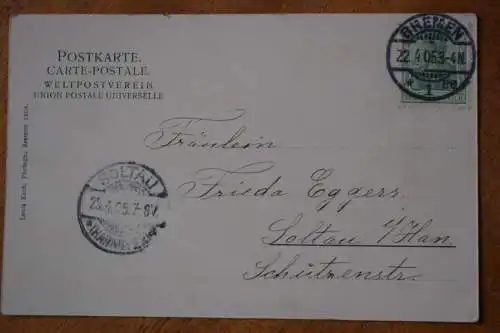 POSTKARTE.
CARTE-POSTALE.
WELTPOSTVEREIN.
UNION POSTALE UNIVERSELLE.
BREMEN
22.4.05.3-4N.
* 1
Fräulein
Frieda Eggers.
Soltau i/Han.
Schützenstr.
SOLTAU
23.4.05.7-8V.
(HANNOVER)
Louis Koch, Photogr., Bremen